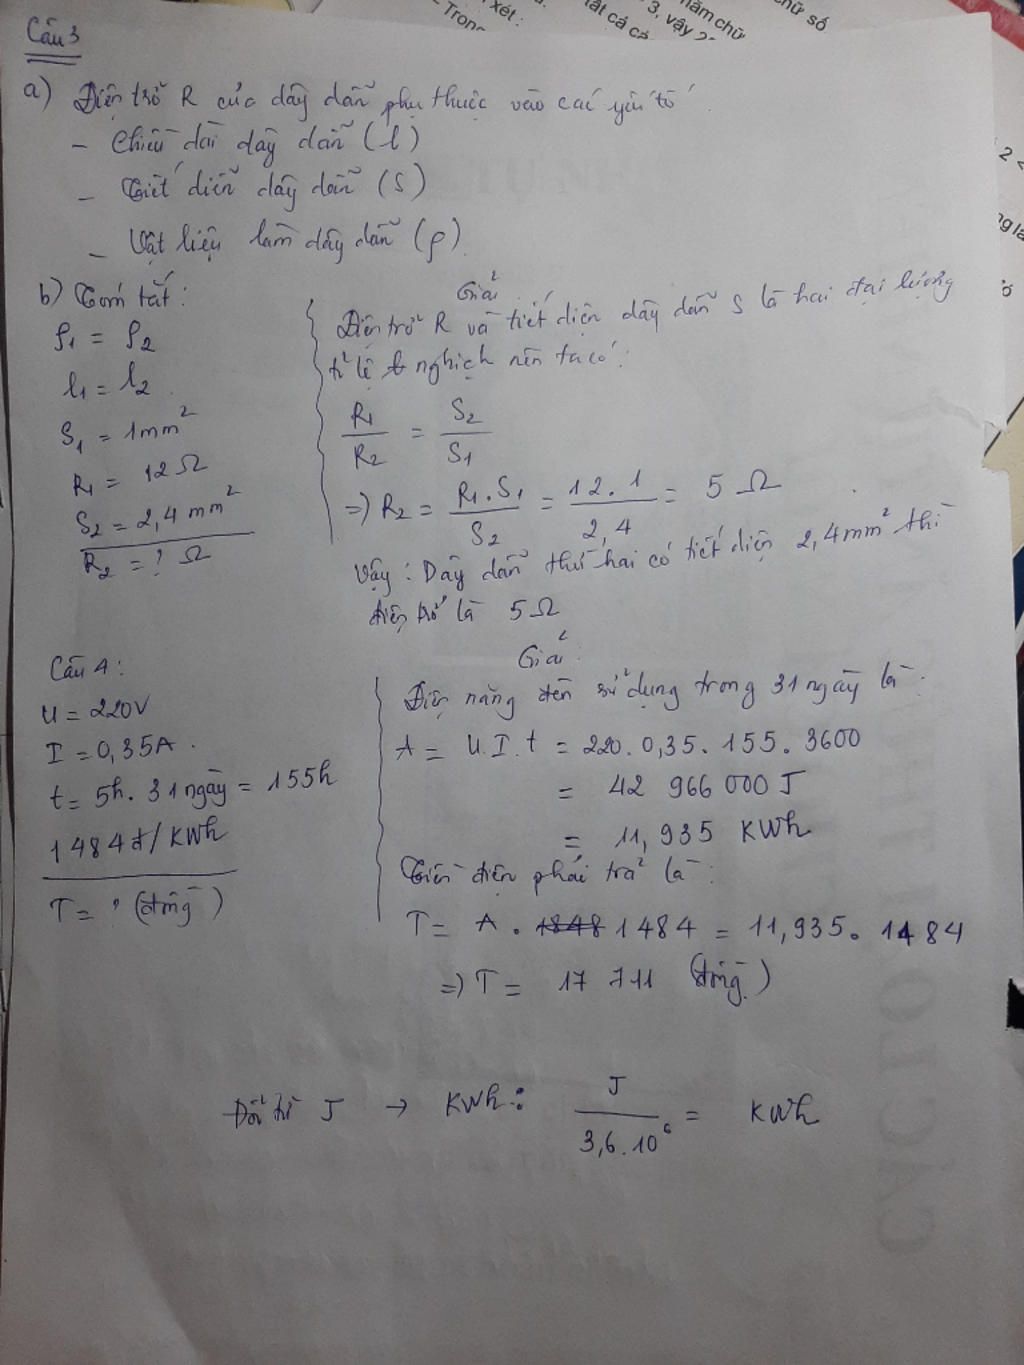 xét :
- Trong
tất cả cá
3, vậy 2
năm chữ
hữ số
Câu 3
a) Điện trở R của dây dẫn phụ thuộc vào các yếu tố
- Chiều dài dây dẫn (l)
- Tiết diện dây dẫn (S)
- Vật liệu làm dây dẫn (ρ).
b) Tóm tắt :
ρ1 = ρ2
l1 = l2
S1 = 1mm²
R1 = 12 Ω
S2 = 2,4 mm²
R2 = ? Ω
Giải
Điện trở R và tiết diện dây dẫn S là hai đại lượng
tỉ lệ nghịch nên ta có :
R1/R2 = S2/S1
=> R2 = R1.S1/S2 = 12.1/2,4 = 5 Ω
Vậy : Dây dẫn thứ hai có tiết diện 2,4mm² thì
điện trở là 5Ω
Câu 4 :
U = 220V
I = 0,35A .
t = 5h . 31 ngày = 155h
1484đ/KWh
T = ? (đồng)
Giải :
Điện năng đèn sử dụng trong 31 ngày là :
A = U.I.t = 220.0,35.155.3600
= 42 966 000 J
= 11,935 KWh
Tiền điện phải trả là :
T = A . 1848 1484 = 11,935 . 1484
=> T = 17 711 (đồng)
Đổi từ J → KWh : J/3,6.10⁶ = KWh